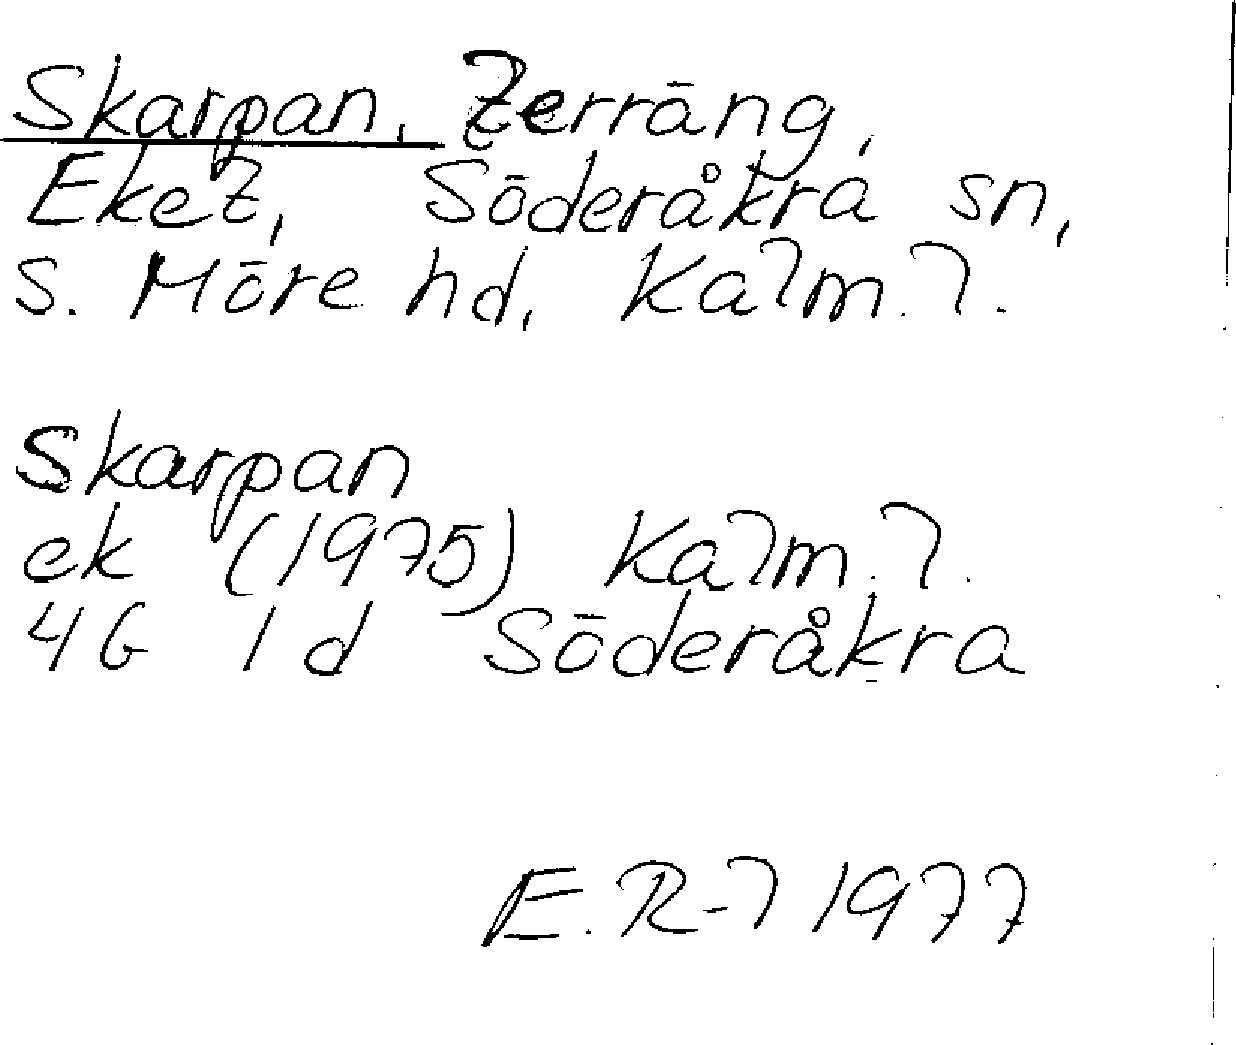 Skarpan, terräng,
Eket, Söderåkra sn,
S. Möre hd, Kalm. l.
Skarpan
ek (1975) Kalm. l.
4G 1d Söderåkra
E. R-l 1977